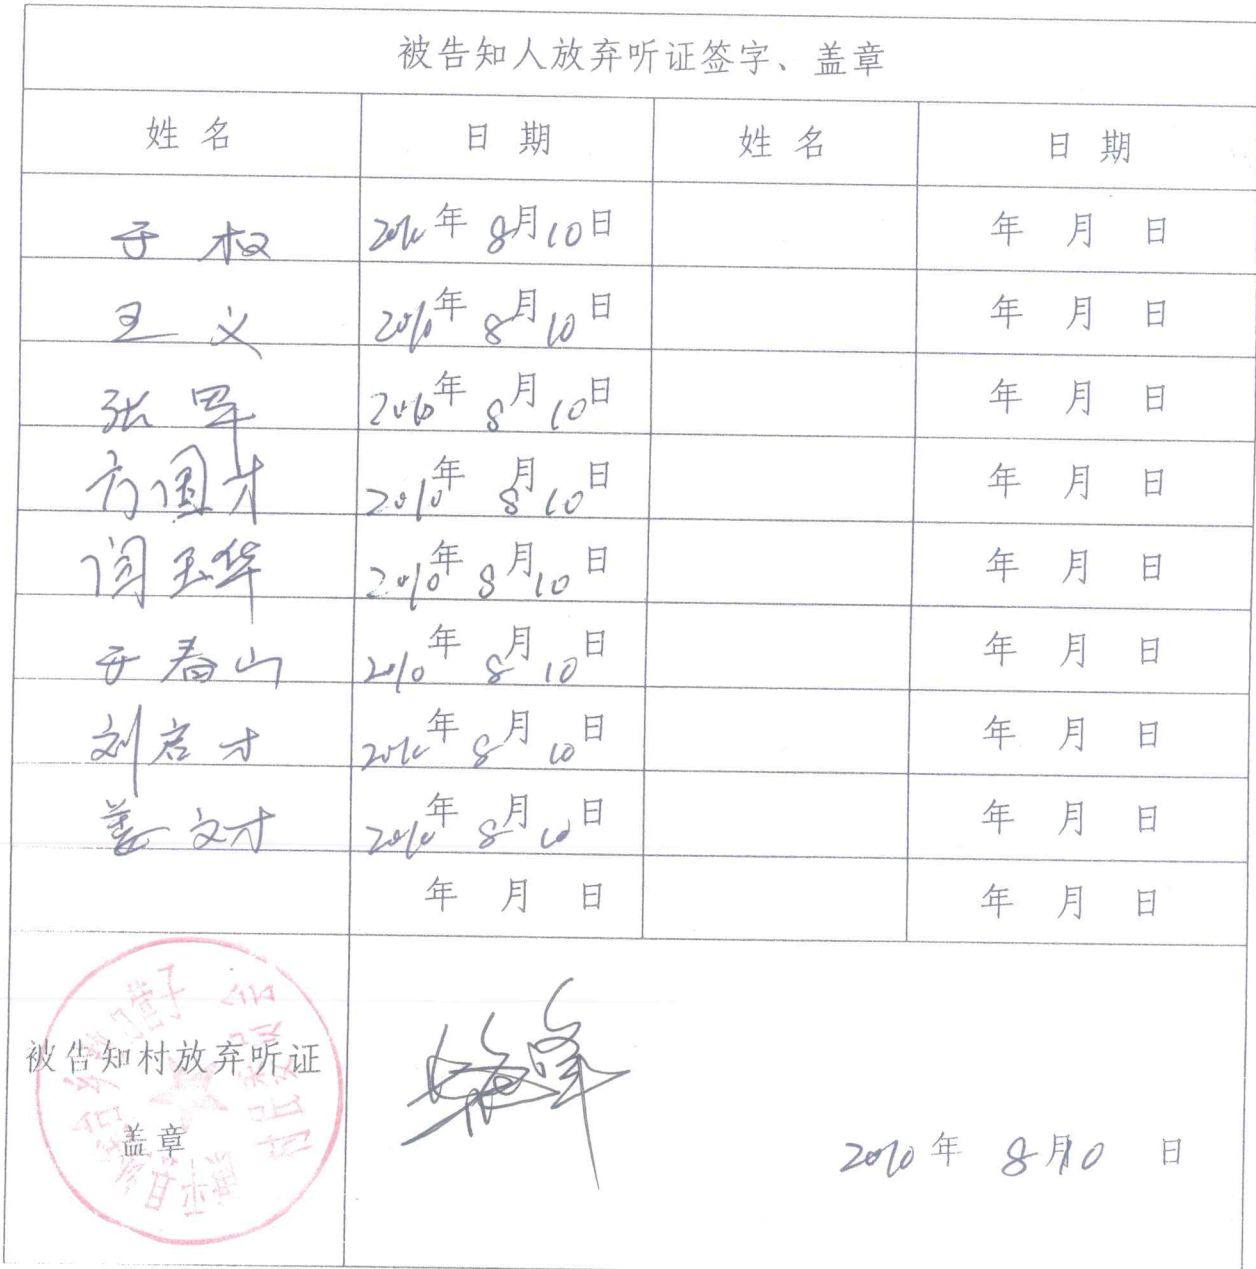 被告知人放弃听证签字、盖章
姓名 日期 姓名 日期
于权 2010年8月10日 年 月 日
王义 2010年8月10日 年 月 日
张军 2010年8月10日 年 月 日
方国才 2010年8月10日 年 月 日
闫玉华 2010年8月10日 年 月 日
于春山 2010年8月10日 年 月 日
刘启才 2010年8月10日 年 月 日
姜文才 2010年8月10日 年 月 日
年 月 日 年 月 日
被告知村放弃听证
盖章
2010年8月10日